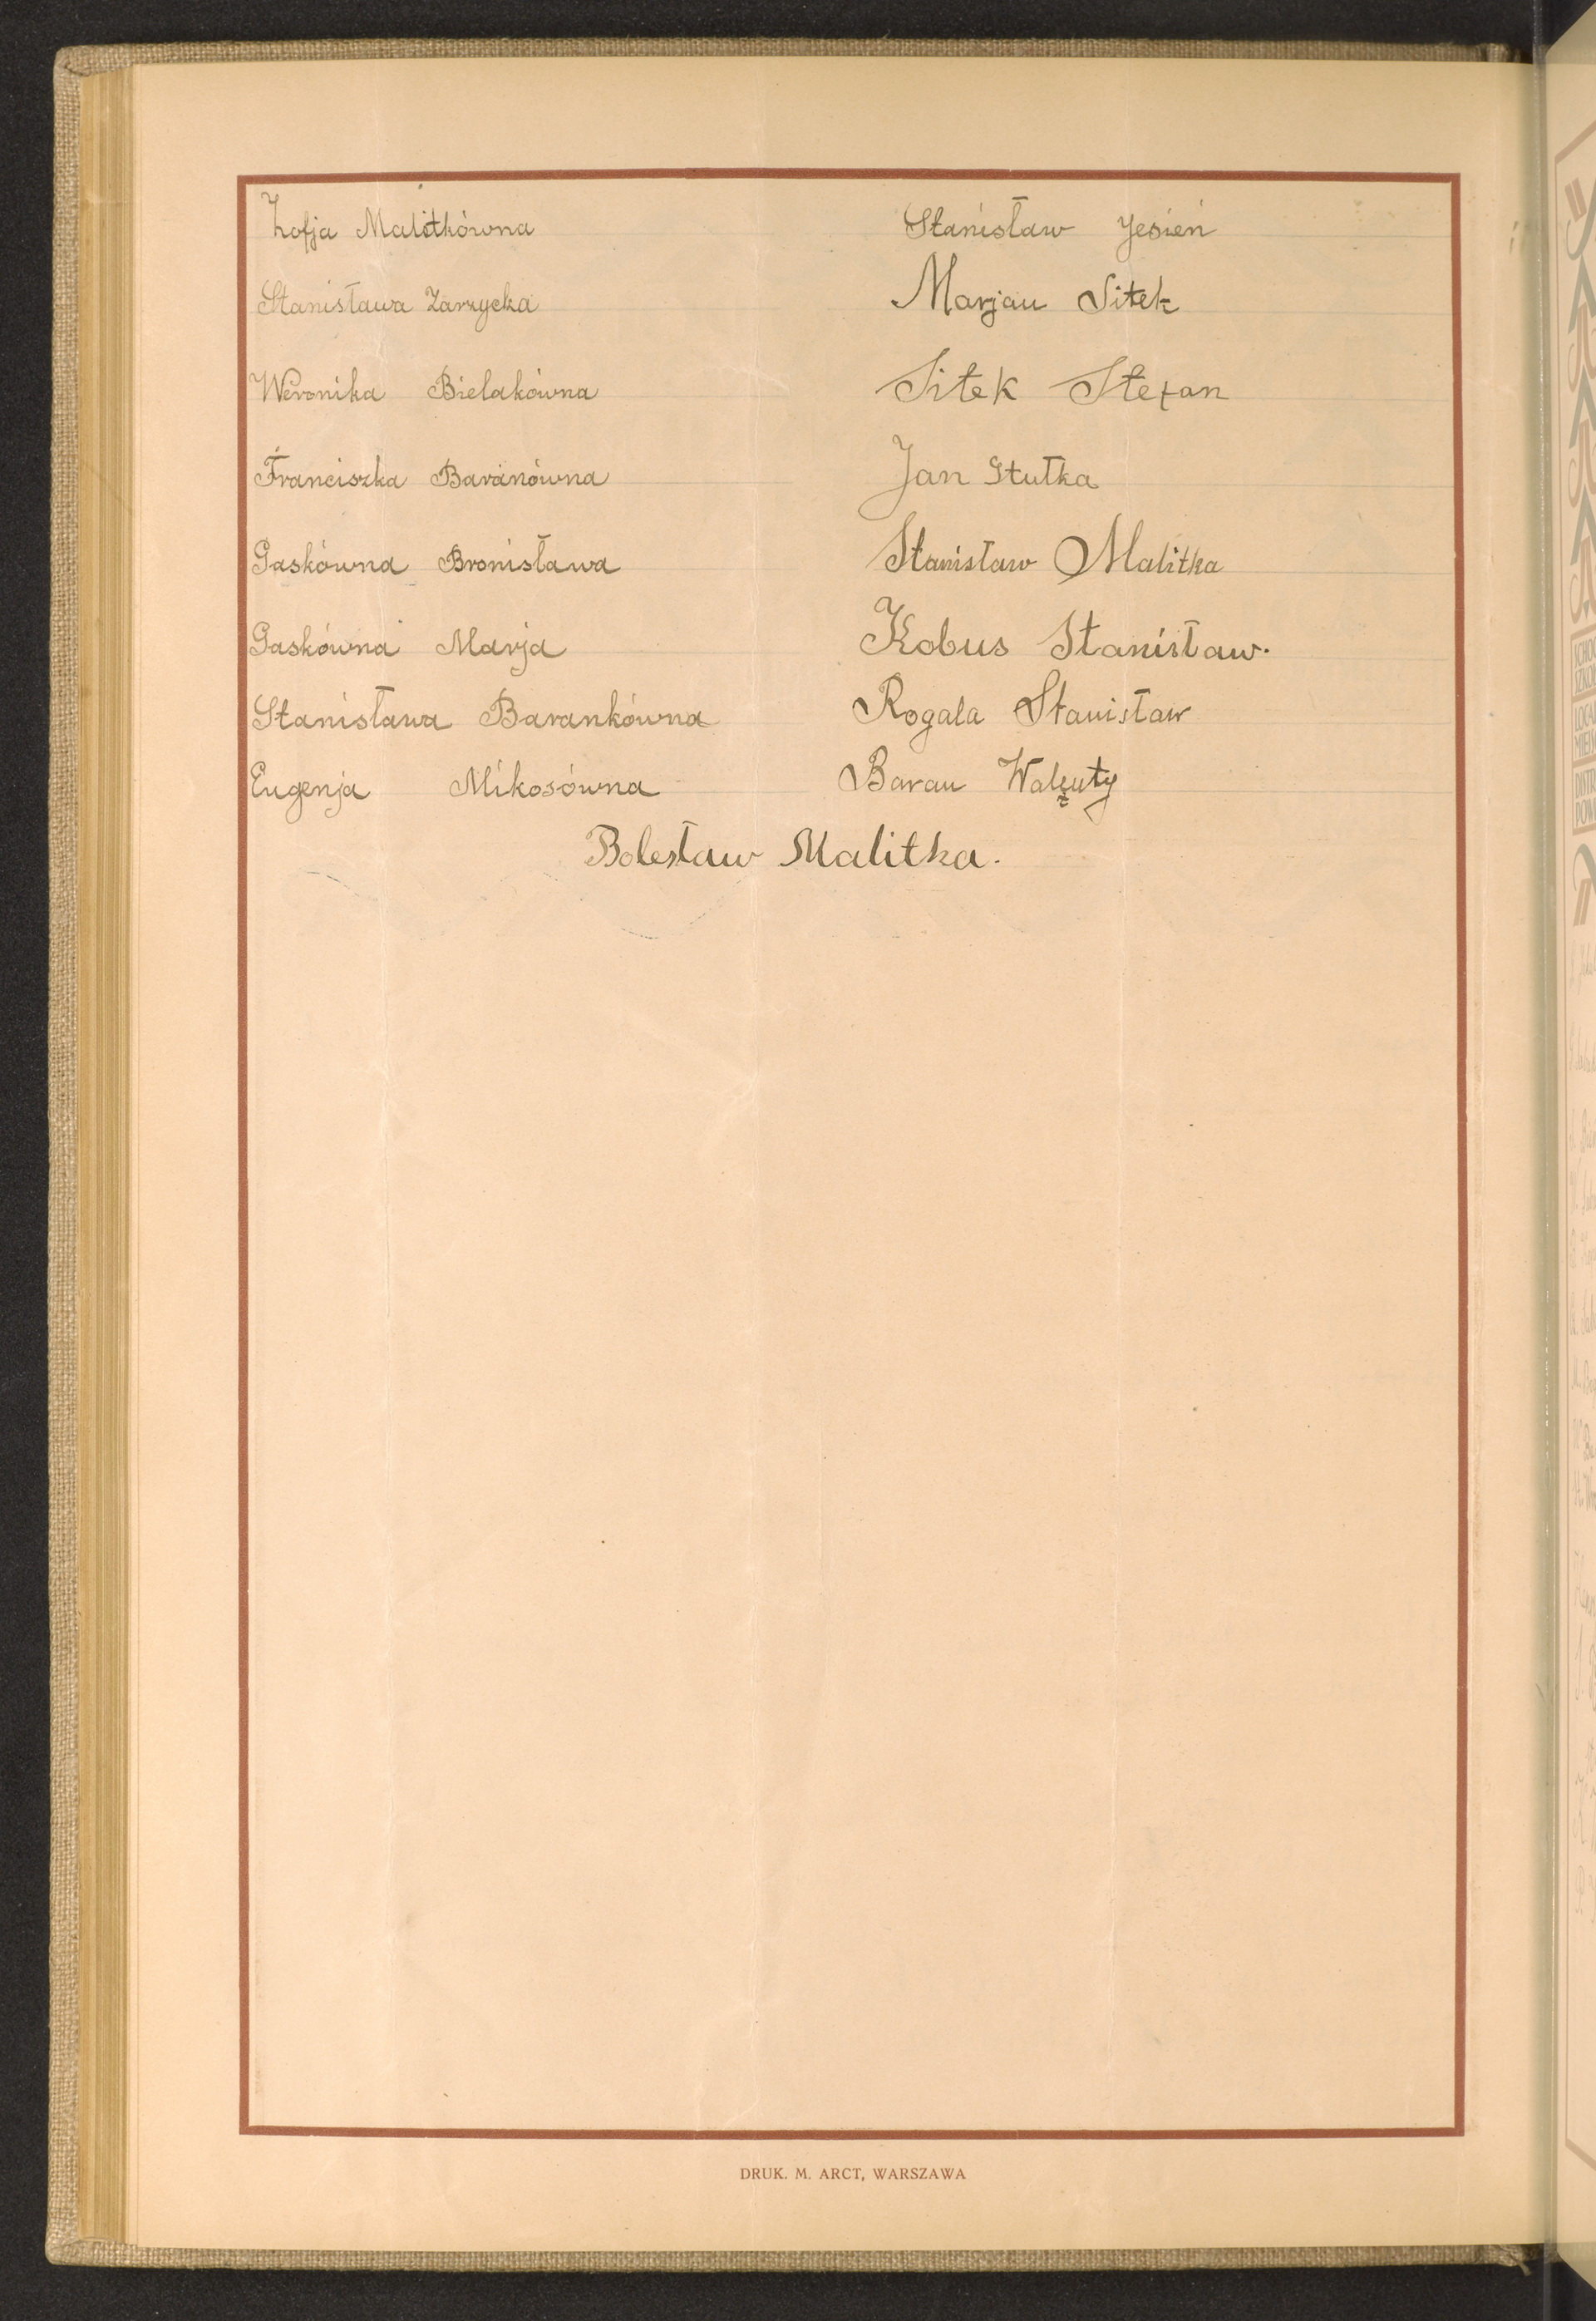 Zofja Malitkówna
Stanisława Zarzycka
Weronika Bielakówna
Franciszka Baranówna
Gaskówna Bronisława
Gaskówna Marja
Stanisława Barankówna
Eugenja Mikosówna
Stanisław Jesień
Marjan Sitek
Sitek Stefan
Jan Stutka
Stanisław Malitka
Kobus Stanisław.
Rogala Stanisław
Baran
Bolesław Malitka.
DRUK. M. ARCT, WARSZAWA